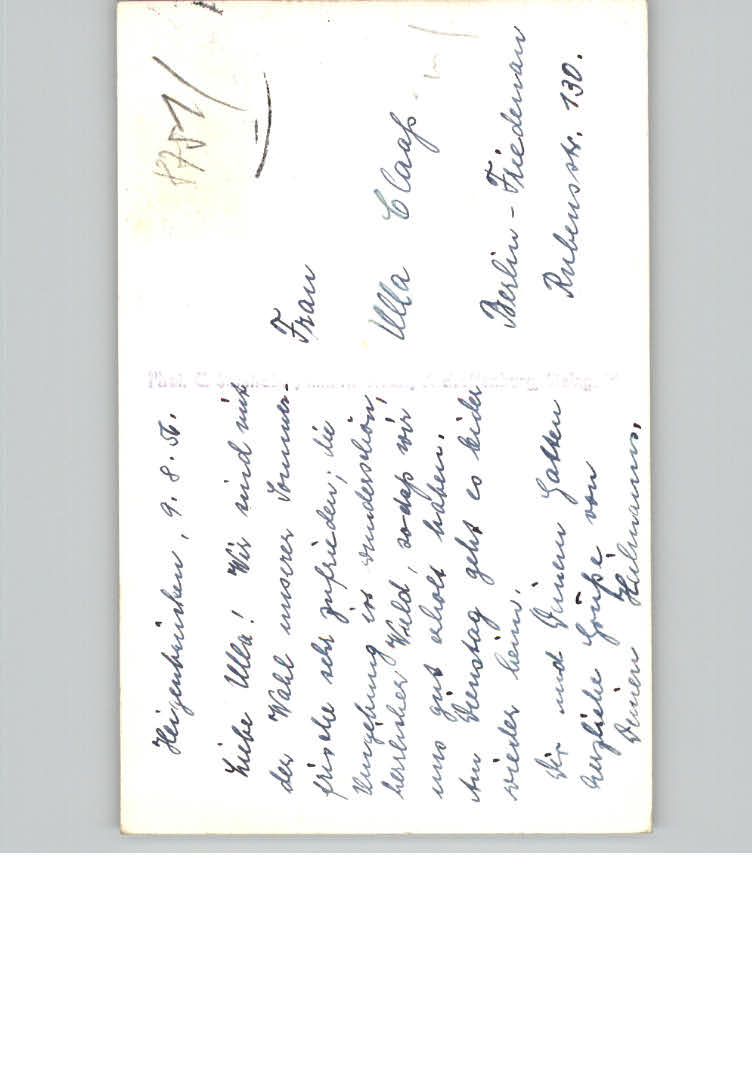 Heigenbrücken, 9.8.56.
Liebe Ulla! Wir sind mit
der Wahl unserer Sommer-
frische sehr zufrieden; die
Umgebung ist wunderschön,
herrlicher Wald, sodaß wir
uns gut erholt haben.
Am Dienstag geht es leider
wieder heim.
Dir und Deinem Gatten
herzliche Grüße von
Deinen Heilmanns.
Frau
Ulla Claaß
Berlin-Friedenau
Rubensstr. 130.